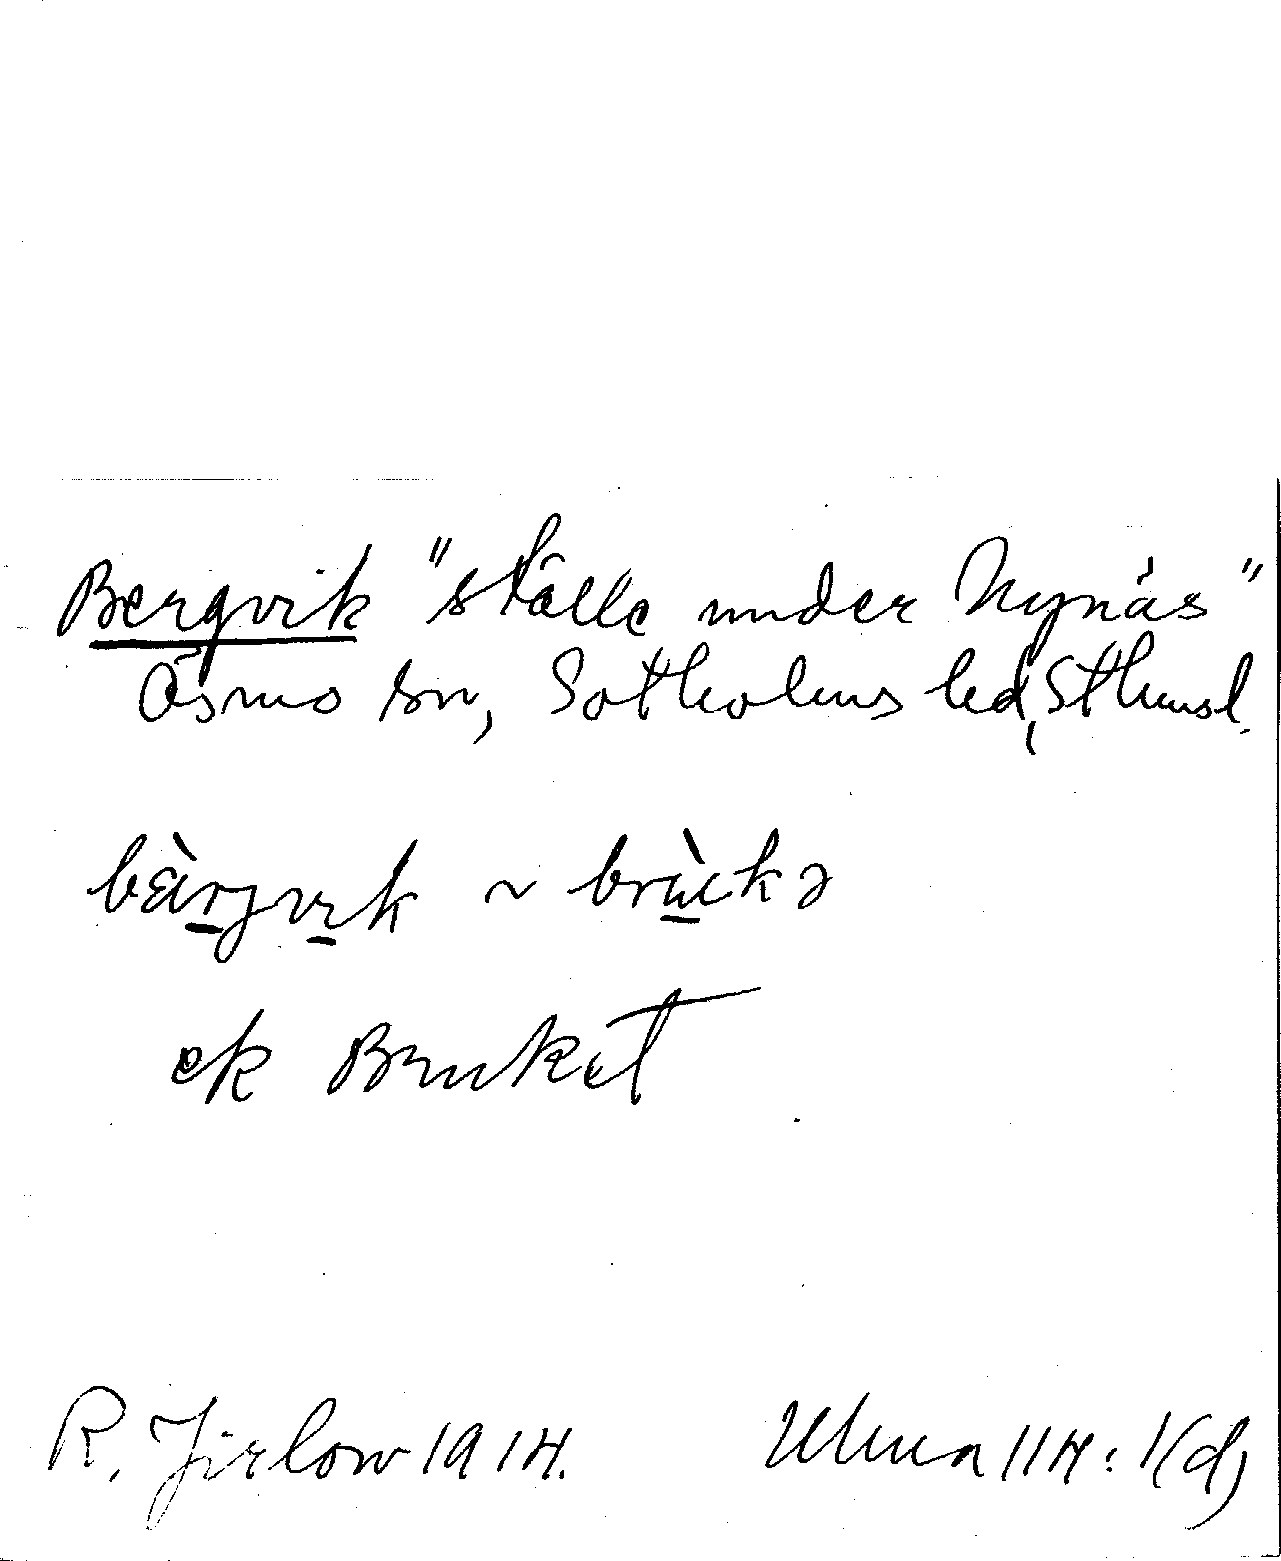 Bergvik "ställe under Nynäs"
Ösmo sn, Sotholms hd, Sthmsl.
bàrjvik ~ brùckə
ek Bruket
R. Jirlow 1914. Ulma 114:1(d)